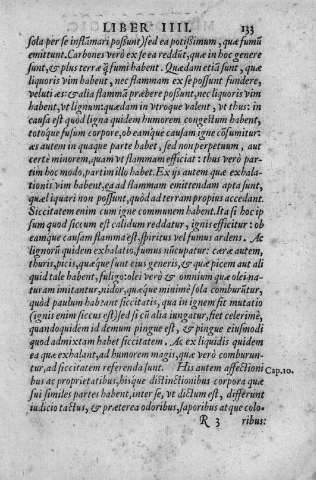 LIBER IIII. 133
sola per se inflãmari possunt) sed ea potissimum, quæ fumũ
emittunt. Carbones verò ex se ea reddũt, quæ in hoc genere
sunt, & plus terræ q̃ fumi habent. Quædam etiã sunt, quæ
liquoris vim habent, nec flammam ex se possunt fundere,
veluti æs: & alia flammã præbere possunt, nec liquoris vim
habent, vt lignum: quædam in vtroque valent, vt thus: in
causa est quòd ligna quidem humorem congestum habent,
totoque fusum corpore, ob eamque causam igne cõsumitur:
æs autem in quaque parte habet, sed non perpetuum, aut
certè minorem, quam vt flammam efficiat: thus verò par-
tim hoc modo, partim illo habet. Ex ijs autem quæ exhala-
tionis vim habent, ea ad flammam emittendam apta sunt,
quæ liquari non possunt, quòd ad terram propius accedant.
Siccitatem enim cum igne communem habent. Ita si hoc ip
sum quod siccum est calidum reddatur, ignis efficitur: ob
eamque causam flamma est, spiritus vel fumus ardens. Ac
lignorũ quidem exhalatio, fumus nũcupatur: ceræ autem,
thuris, picis, quæque sunt eius generis, & quæ picem aut ali
quid tale habent, fuligo: olei verò & omnium quæ olei na-
turam imitantur, nidor, quæque minimè sola combũrũtur,
quòd paulum habeant siccitatis, qua in ignem fit mutatio
(ignis enim siccus est) sed si cũ alia iungatur, fiet celerimè,
quandoquidem id demum pingue est, & pingue eiusmodi
quod admixtam habet siccitatem. Ac ex liquidis quidem
ea quæ exhalant, ad humorem magis, quæ verò comburun-
tur, ad siccitatem referenda sunt. His autem affectioni Cap. 10.
bus ac proprietatibus, hisque distinctionibus corpora quæ
sui similes partes habent, inter se, vt dictum est, differunt
iudicio tactus, & præterea odoribus, saporibus atque colo-
R 3 ribus: